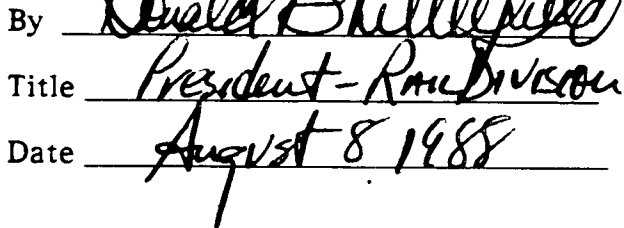 By Donald B
Title President - Rail Division
Date August 8 1988